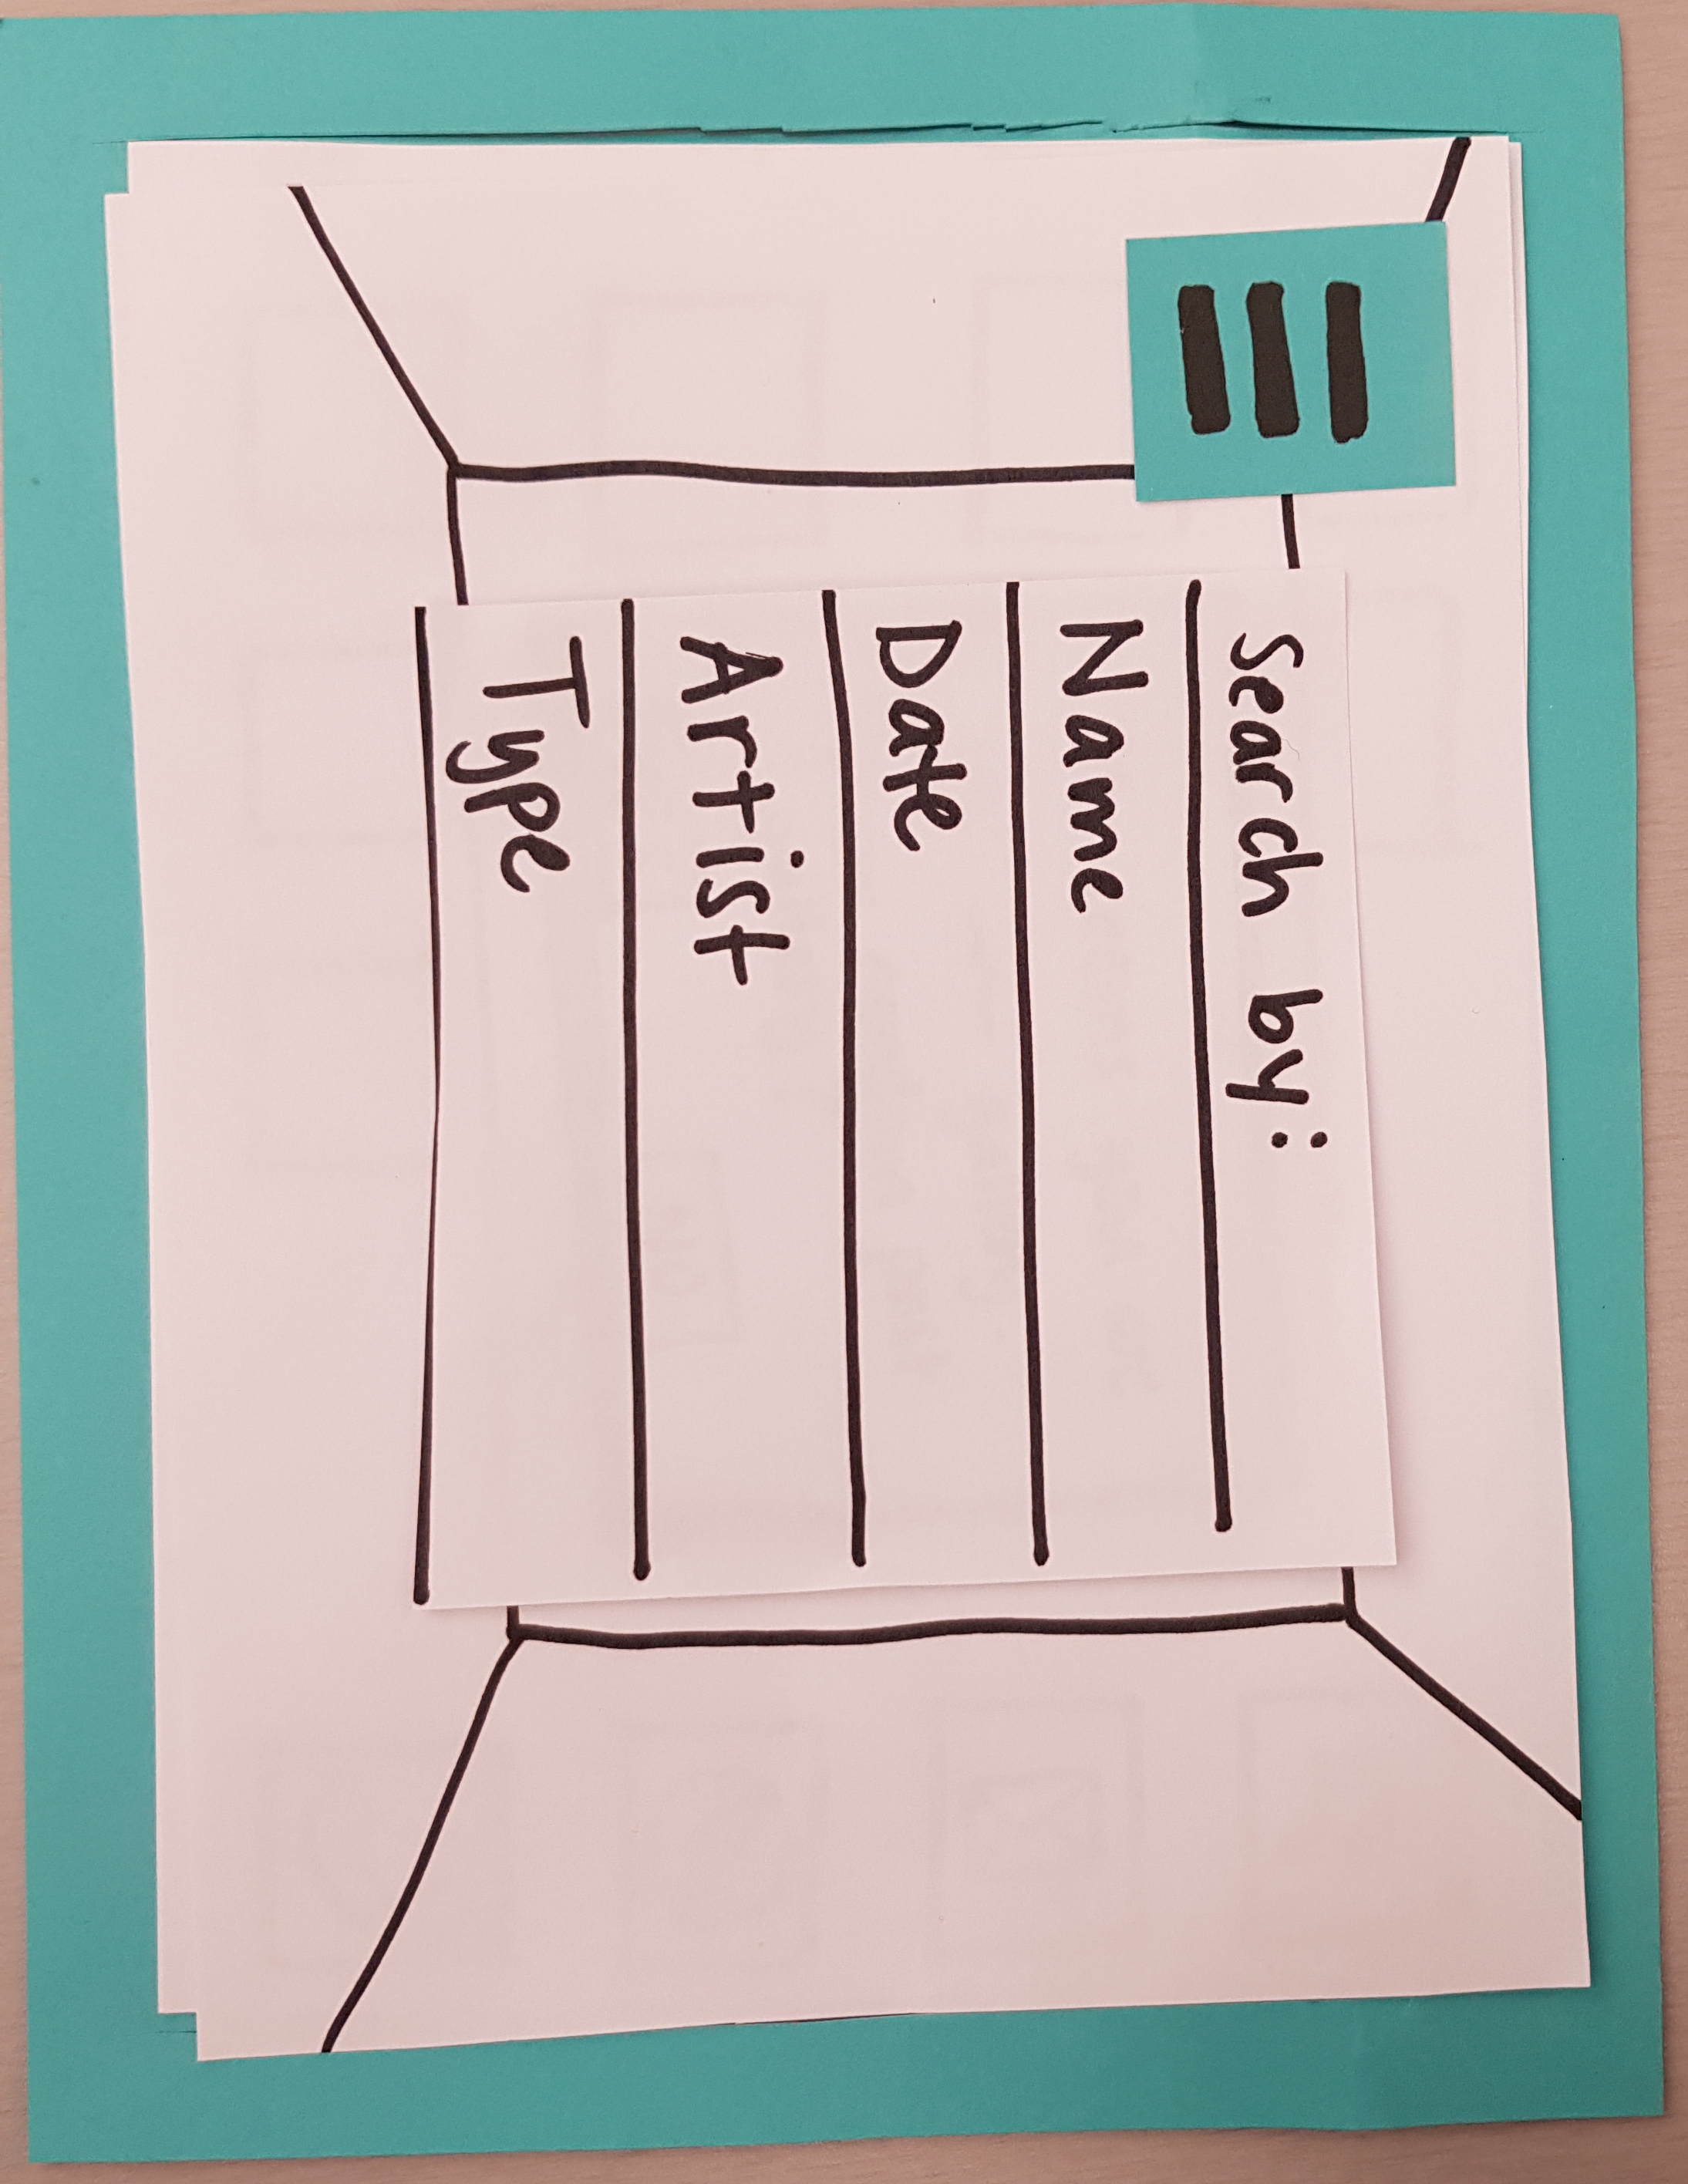 Search by:
Name
Date
Artist
Type